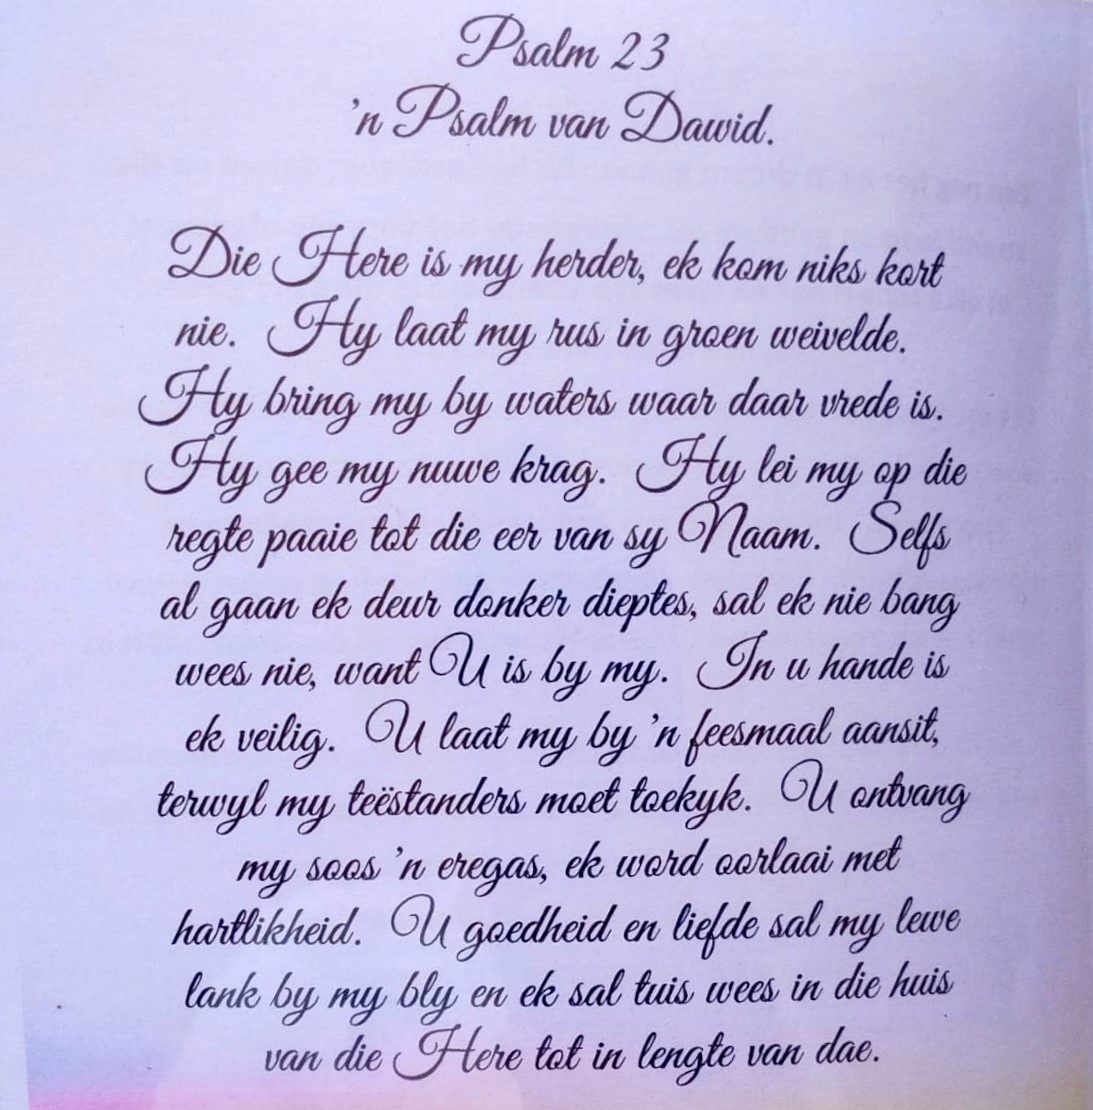 Psalm 23
'n Psalm van Dawid.
Die Here is my herder, ek kom niks kort
nie. Hy laat my rus in groen weivelde.
Hy bring my by waters waar daar vrede is.
Hy gee my nuwe krag. Hy lei my op die
regte paaie tot die eer van sy Naam. Selfs
al gaan ek deur donker dieptes, sal ek nie bang
wees nie, want U is by my. In u hande is
ek veilig. U laat my by 'n feesmaal aansit,
terwyl my teëstanders moet toekyk. U ontvang
my soos 'n eregas, ek word oorlaai met
hartlikheid. U goedheid en liefde sal my lewe
lank by my bly en ek sal tuis wees in die huis
van die Here tot in lengte van dae.